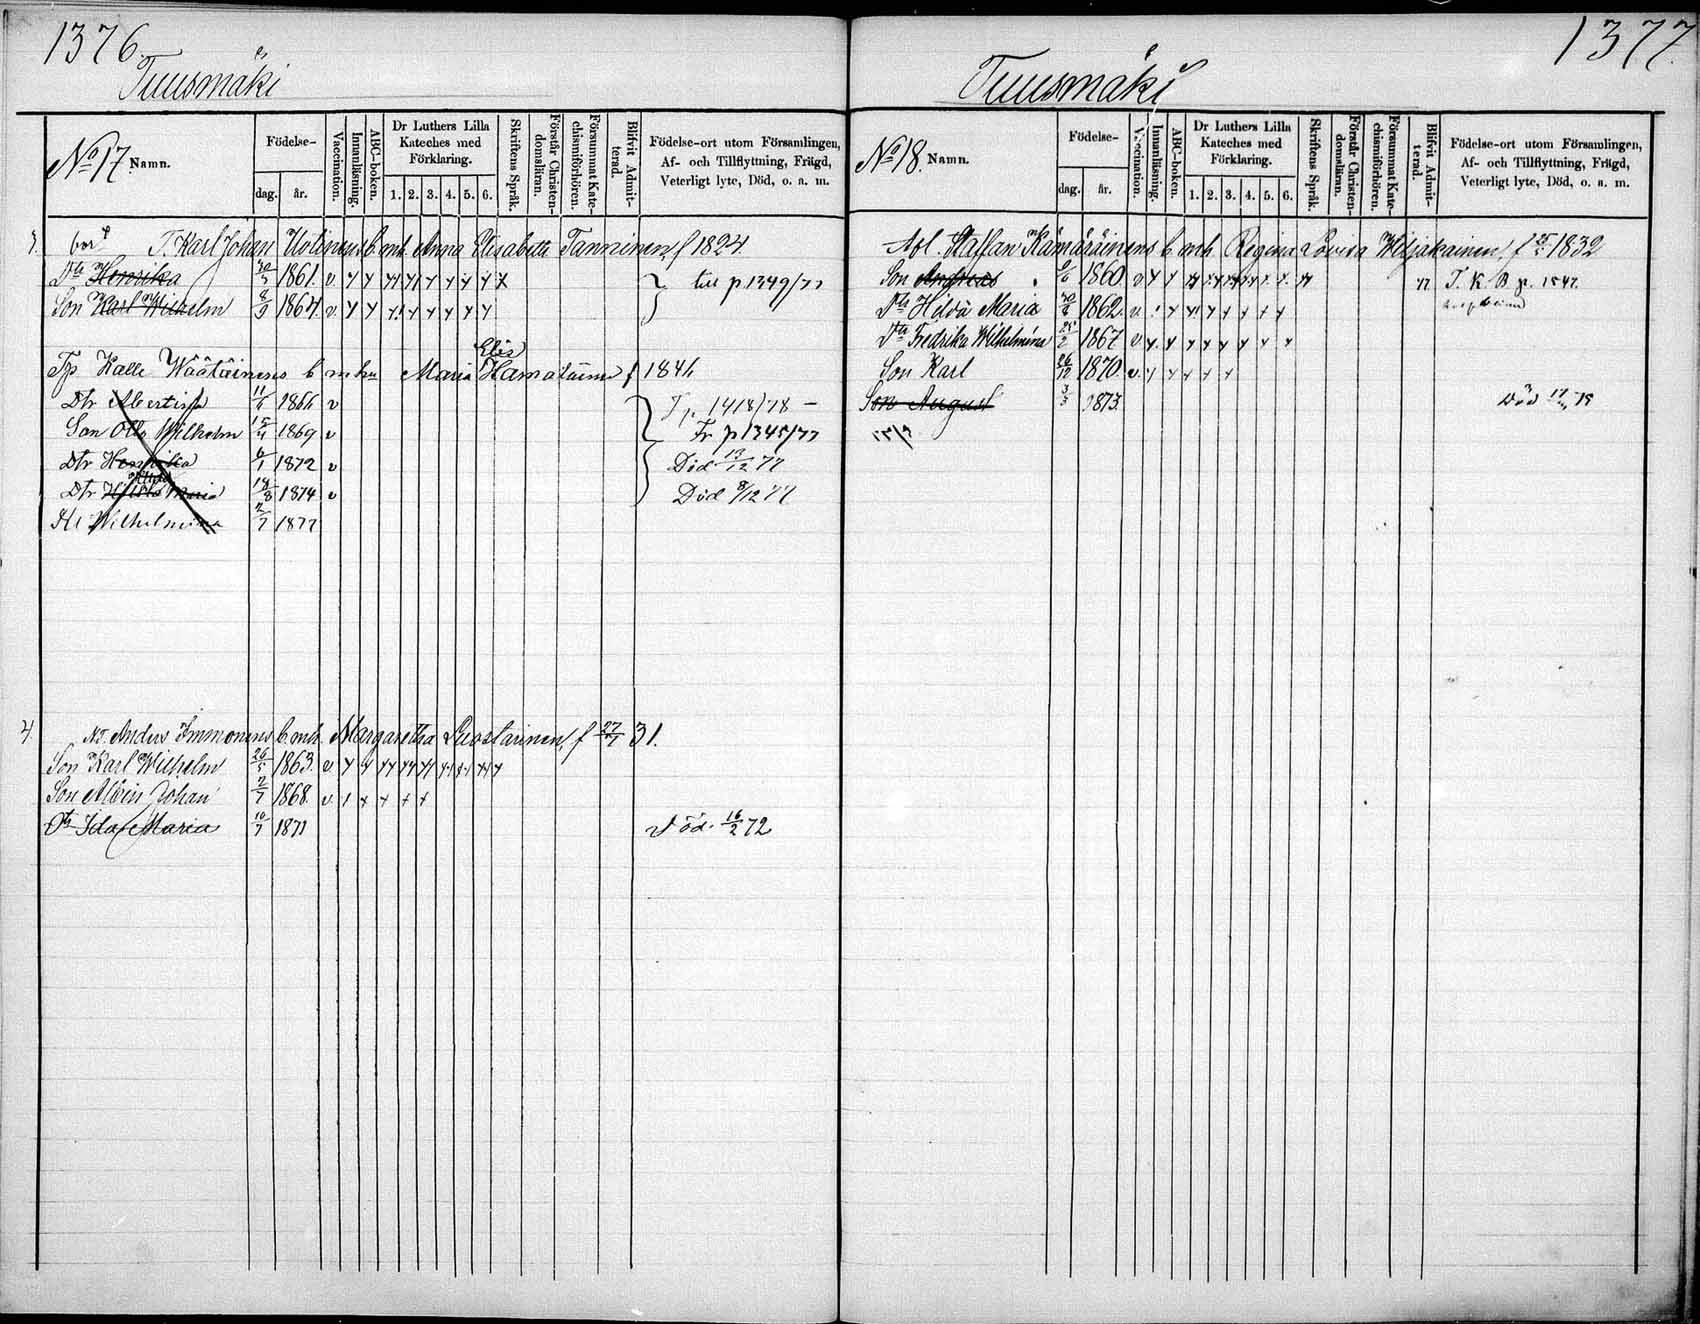 1376.
Tuusmäki
No 17. Namn.
Födelse-
dag. år.
Vaccination.
Innanläsning.
ABC-boken.
Dr Luthers Lilla
Kateches med
Förklaring.
1. 2. 3. 4. 5. 6.
Skriftens Språk.
Förstår Christen-
domsläran.
Försummat Kate-
chismiförhören.
Blifvit Admit-
terad.
Födelse-ort utom Församlingen,
Af- och Tillflyttning, Frägd,
Veterligt lyte, Död, o. a. m.
T. Karl Johan b mh Anna Elisabeth Tanninen, f 1824
Dtr Henrika 1861. v. till p 1349/77
Son Karl Wilhelm 8/9 1864. v.
Elis
Kalle Wäätäinens b m Maria f 1846
Dtr Albertina 1866 v 1418/78 -
Son Otto Wilhelm 1869 v Fr p 1345/77
Dtr Henrika 6/1 1872 v Död 13/12 77
Dtr Maria 18/8 1874 v Död 8/12 77
Wilhelmina 2/7 1877
Anders Immonens b mh Margaretha Luostarinen, f 27/7 31.
Son Karl Wilhelm 26/5 1863. v
Son Albin Johan 7/7 1868. v
Dtr Ida Maria 10/7 1871 Död. 16/2 72
1377.
Tuusmäki
No 18. Namn.
Födelse-
dag. år.
Vaccination.
Innanläsning.
ABC-boken.
Dr Luthers Lilla
Kateches med
Förklaring.
1. 2. 3. 4. 5. 6.
Skriftens Språk.
Förstår Christen-
domsläran.
Försummat Kate-
chismiförhören.
Blifvit Admit-
terad.
Födelse-ort utom Församlingen,
Af- och Tillflyttning, Frägd,
Veterligt lyte, Död, o. a. m.
Staffan Kämäräinens b mh Regina Lovisa Weijakainen, f 1832
Son Andreas 1860. v 77 T. K. B p. 1547.
Dtr Hilda Maria 1862. v
Dtr Fredrika Wilhelmina 25/2 1867 v
Son Karl 26/12 1870. v
Son August 3/3 1873. Död